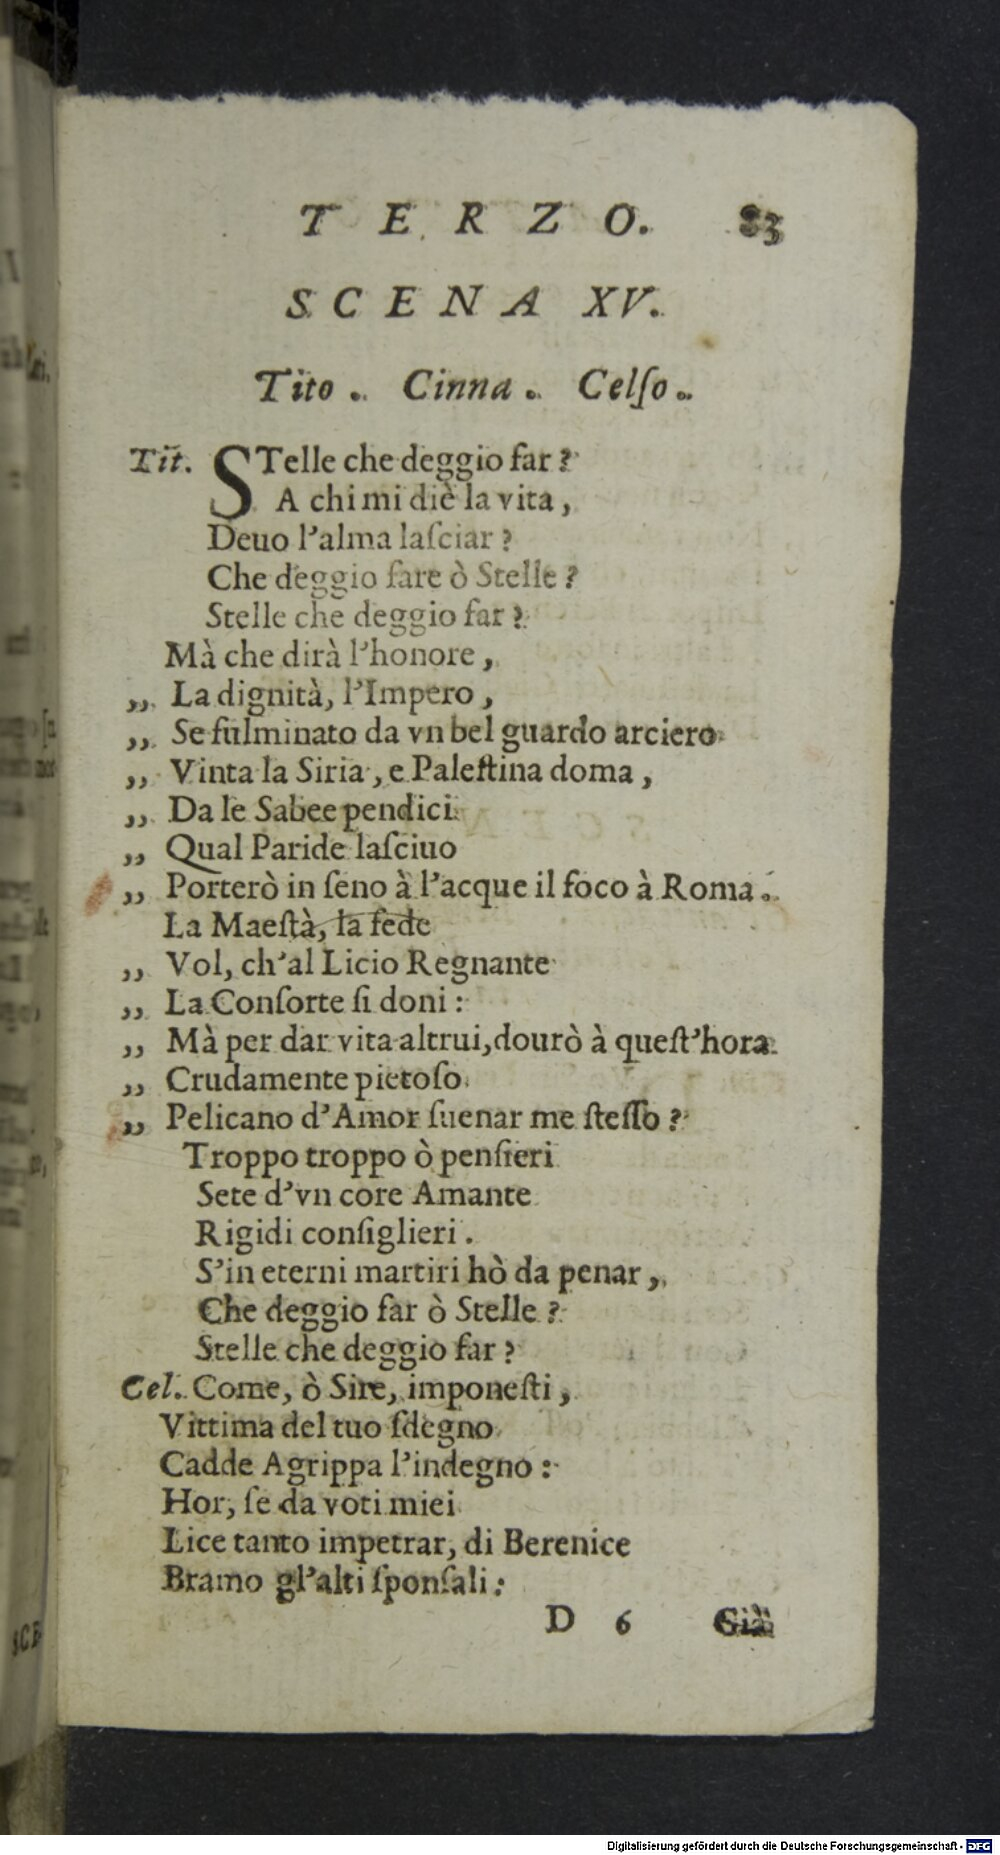 TERZO. 83
SCENA XV.
Tito. Cinna. Celſo.
Tit. STelle che deggio far?
A chi mi diè la vita,
Deuo l'alma laſciar?
Che deggio fare ò Stelle?
Stelle che deggio far?
Mà che dirà l'honore,
,, La dignità, l'Impero,
,, Se fulminato da vn bel guardo arciero
,, Vinta la Siria, e Paleſtina doma,
,, Da le Sabee pendici
,, Qual Paride laſciuo
,, Porterò in ſeno à l'acque il foco à Roma.
La Maeſtà, la fede
,, Vol, ch'al Licio Regnante
,, La Conſorte ſi doni:
,, Mà per dar vita altrui, dourò à queſt'hora
,, Crudamente pietoſo
,, Pelicano d'Amor ſuenar me ſteſſo?
Troppo troppo ò penſieri
Sete d'vn core Amante
Rigidi conſiglieri.
S'in eterni martiri hò da penar,
Che deggio far ò Stelle?
Stelle che deggio far?
Cel. Come, ò Sire, imponeſti,
Vittima del tuo ſdegno
Cadde Agrippa l'indegno:
Hor, ſe da voti miei
Lice tanto impetrar, di Berenice
Bramo gl'alti ſponſali:
D 6 Già
Digitalisierung gefördert durch die Deutsche Forschungsgemeinschaft - DFG